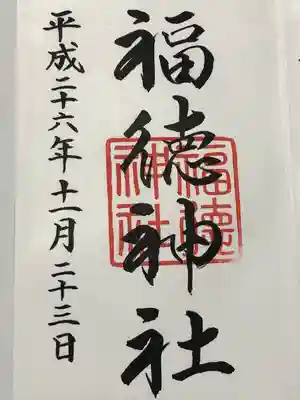 福徳神社
平成二十六年十一月二十三日
福徳
神社